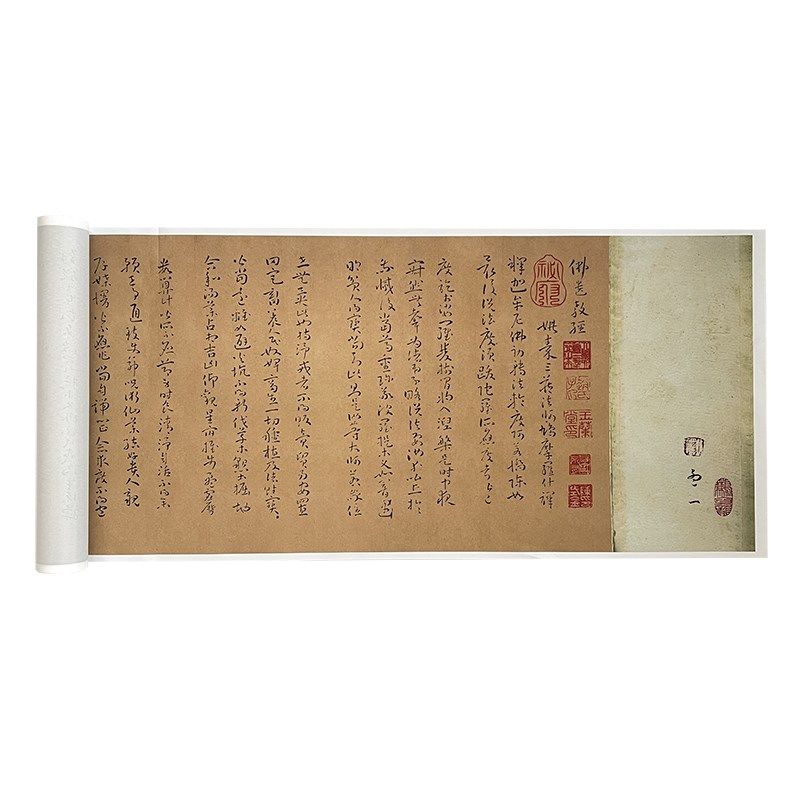 佛遺教經
姚秦三藏法師鳩摩羅什譯
釋迦牟尼佛初轉法輪度阿若憍陳如
最後說法度須跋陀羅所應度者皆已
度訖於娑羅雙樹間將入涅槃是時中夜
寂然無聲為諸弟子略說法要汝等比丘於
我滅後當尊重珍敬波羅提木叉如闇遇
明貧人得寶當知此則是汝等大師若我住
世無異此也持淨戒者不得販賣貿易安置
田宅畜養人民奴婢畜生一切種植及諸財寶
皆當遠離如避火坑不得斬伐草木墾土掘地
合和湯藥占相吉凶仰觀星宿推步盈虛曆
數算計皆所不應節身時食清淨自活不得參
預世事通致使命呪術仙藥結好貴人親
厚媟嫚皆不應作當自端心正念求度不得包